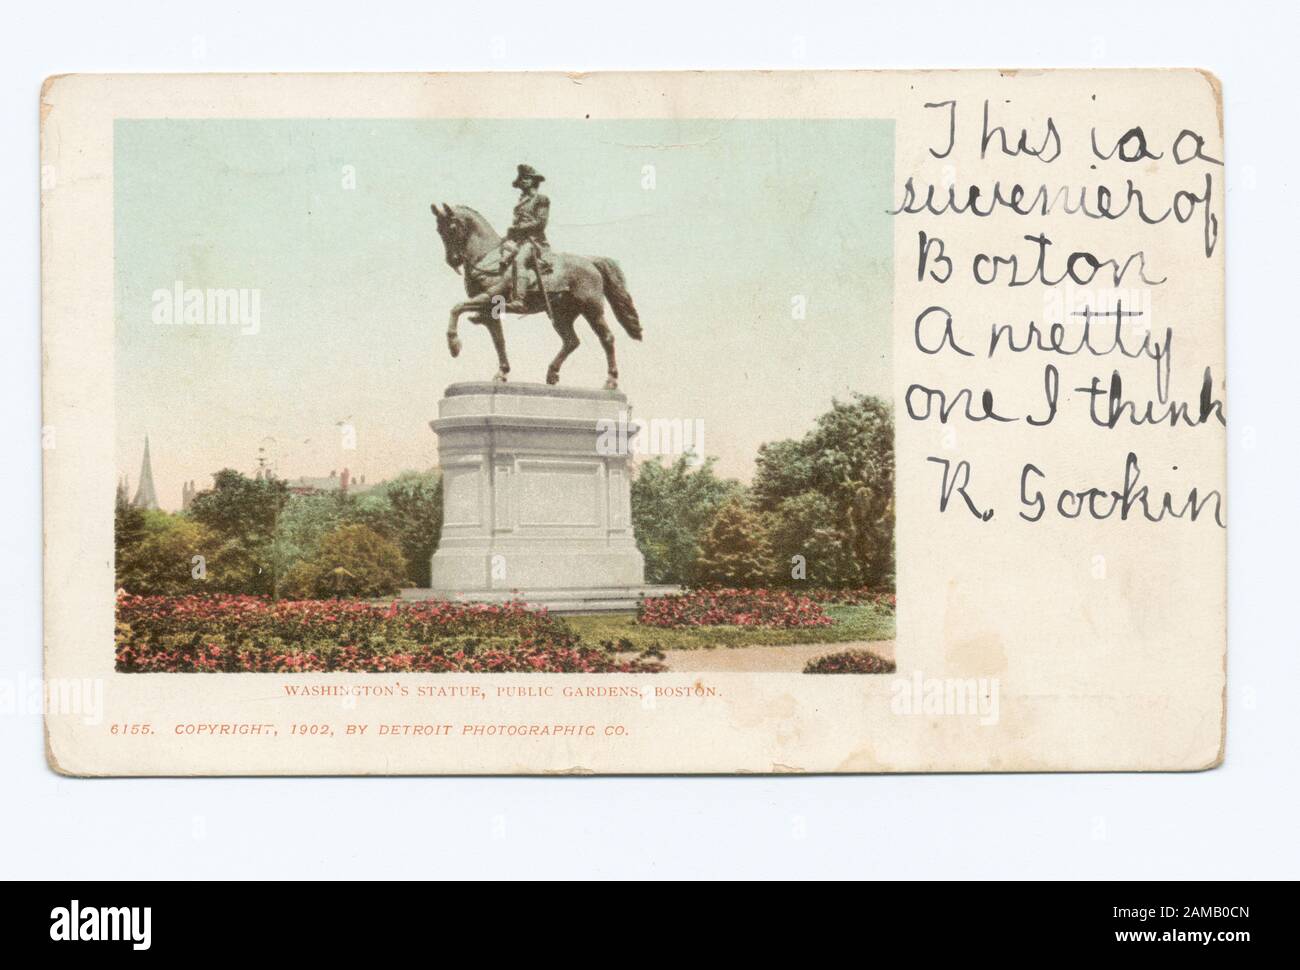 This is a
suvenier of
Boston
A pretty
one I think
R. Gookin
WASHINGTON'S STATUE, PUBLIC GARDENS, BOSTON.
6155. COPYRIGHT, 1902, BY DETROIT PHOTOGRAPHIC CO.
alamy
alamy
Image ID: 2AMB0CN
www.alamy.com